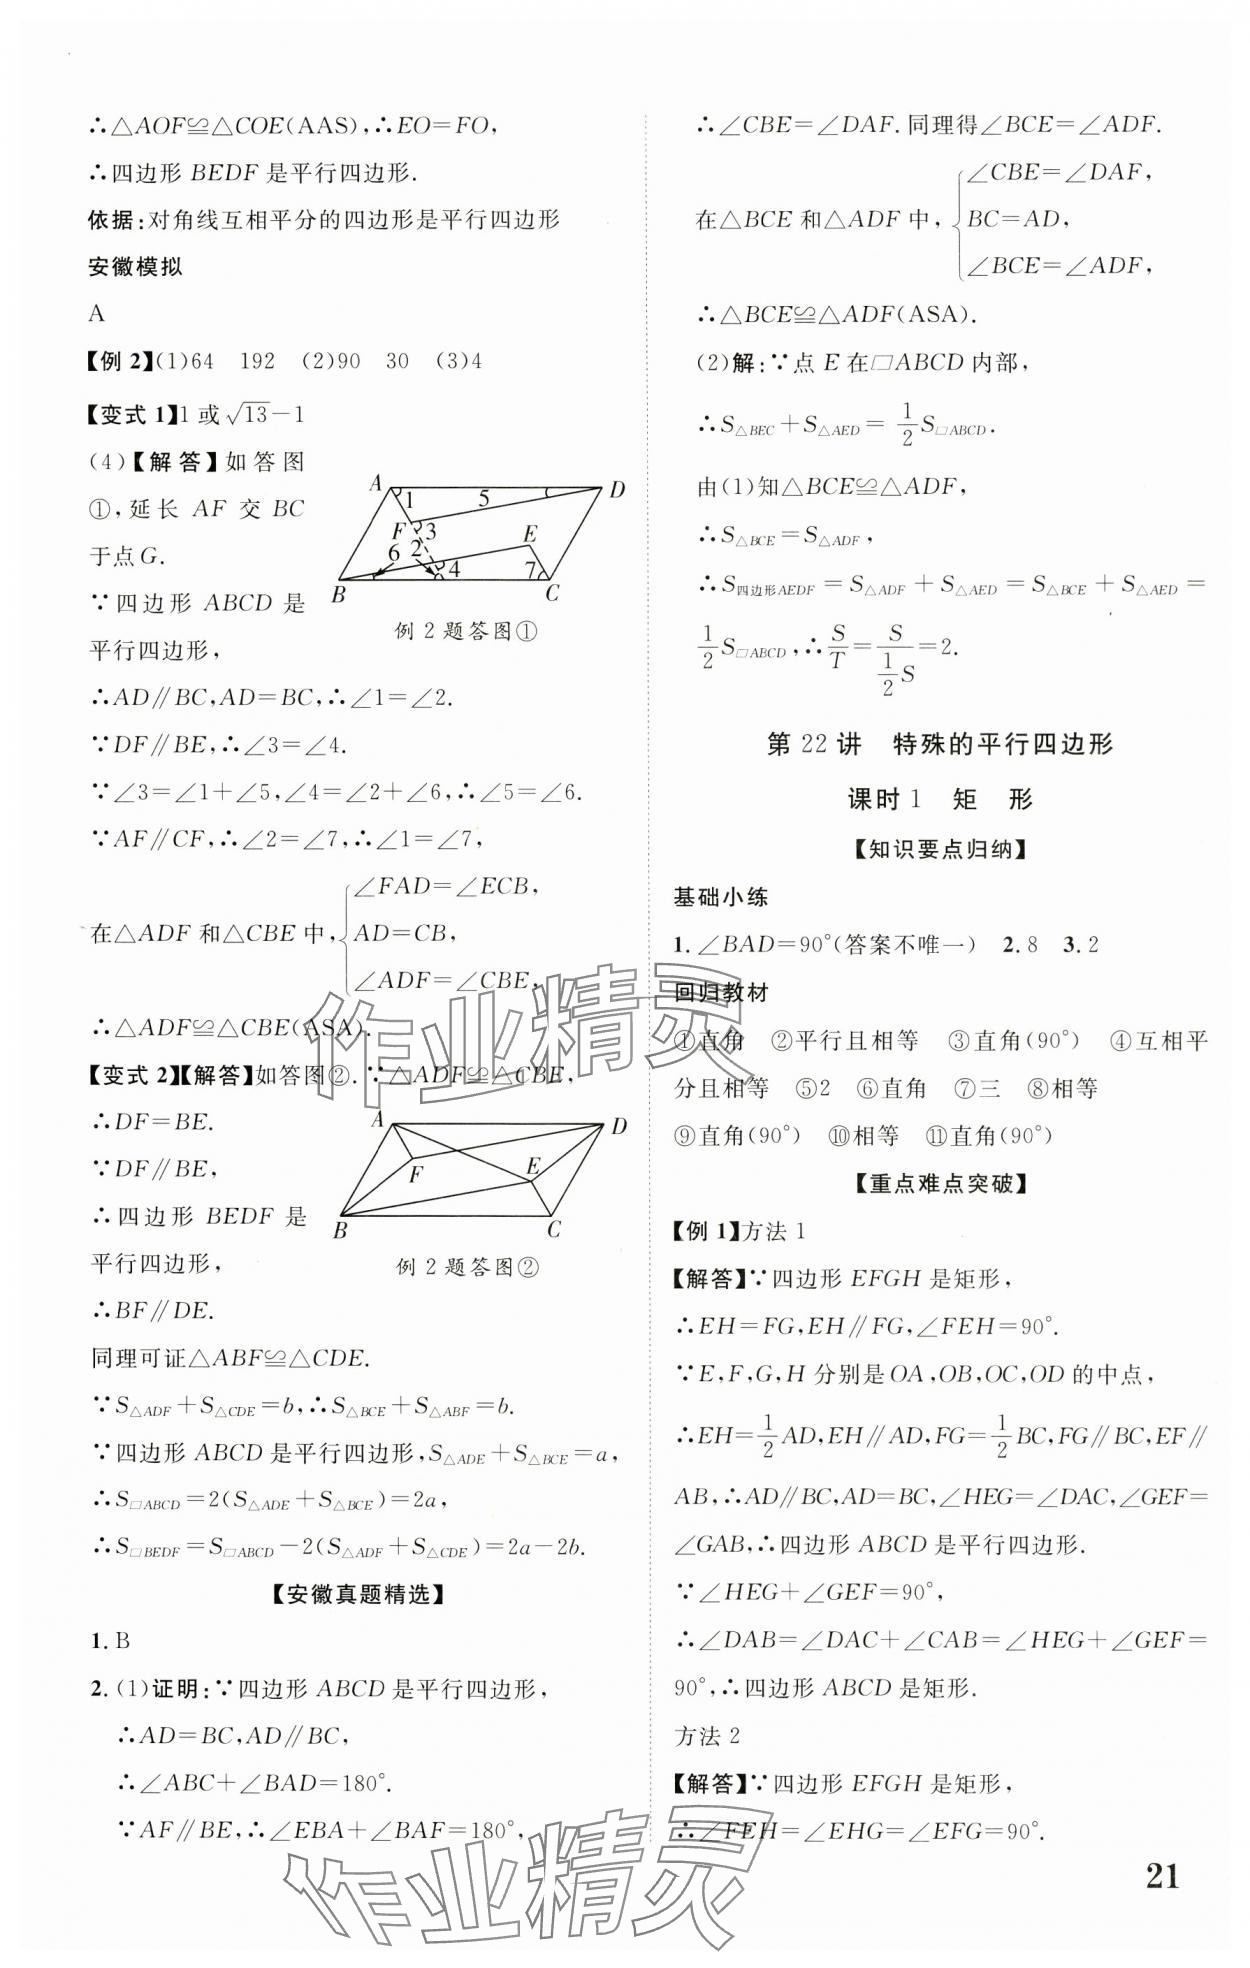 ∴△AOF≌△COE(AAS),∴EO=FO,
∴四边形 BEDF 是平行四边形.
依据:对角线互相平分的四边形是平行四边形
安徽模拟
A
【例 2】(1)64 192 (2)90 30 (3)4
【变式 1】1 或 √13-1
(4)【解答】如答图
①,延长 AF 交 BC
于点G.
∵四边形 ABCD 是
平行四边形,
A 1 5 D
F 3 E
6 2 4 7
B C
例 2 题答图①
∴AD∥BC,AD=BC,∴∠1=∠2.
∵DF∥BE,∴∠3=∠4.
∵∠3=∠1+∠5,∠4=∠2+∠6,∴∠5=∠6.
∵AF∥CF,∴∠2=∠7,∴∠1=∠7,
在△ADF 和△CBE 中,{∠FAD=∠ECB,
AD=CB,
∠ADF=∠CBE,
∴△ADF≌△CBE(ASA).
【变式 2】【解答】如答图②.∵△ADF≌△CBE,
∴DF=BE.
∵DF∥BE,
∴四边形 BEDF 是
平行四边形,
A D
F E
B C
例 2 题答图②
∴BF∥DE.
同理可证△ABF≌△CDE.
∵S△ADF+S△CDE=b,∴S△BCE+S△ABF=b.
∵四边形 ABCD 是平行四边形,S△ADE+S△BCE=a,
∴S□ABCD=2(S△ADE+S△BCE)=2a,
∴S□BEDF=S□ABCD-2(S△ADF+S△CDE)=2a-2b.
【安徽真题精选】
1.B
2.(1)证明:∵四边形 ABCD 是平行四边形,
∴AD=BC,AD∥BC,
∴∠ABC+∠BAD=180°.
∵AF∥BE,∴∠EBA+∠BAF=180°,
∴∠CBE=∠DAF.同理得∠BCE=∠ADF.
在△BCE 和△ADF 中,{∠CBE=∠DAF,
BC=AD,
∠BCE=∠ADF,
∴△BCE≌△ADF(ASA).
(2)解:∵点 E 在□ABCD 内部,
∴S△BEC+S△AED=1/2 S□ABCD.
由(1)知△BCE≌△ADF,
∴S△BCE=S△ADF,
∴S四边形AEDF=S△ADF+S△AED=S△BCE+S△AED=
1/2 S□ABCD,∴S/T=S/(1/2 S)=2.
第 22 讲 特殊的平行四边形
课时 1 矩 形
【知识要点归纳】
基础小练
1.∠BAD=90°(答案不唯一) 2.8 3.2
回归教材
①直角 ②平行且相等 ③直角(90°) ④互相平
分且相等 ⑤2 ⑥直角 ⑦三 ⑧相等
⑨直角(90°) ⑩相等 ⑪直角(90°)
【重点难点突破】
【例 1】方法 1
【解答】∵四边形 EFGH 是矩形,
∴EH=FG,EH∥FG,∠FEH=90°.
∵E,F,G,H 分别是 OA,OB,OC,OD 的中点,
∴EH=1/2 AD,EH∥AD,FG=1/2 BC,FG∥BC,EF∥
AB,∴AD∥BC,AD=BC,∠HEG=∠DAC,∠GEF=
∠GAB,∴四边形 ABCD 是平行四边形.
∵∠HEG+∠GEF=90°,
∴∠DAB=∠DAC+∠CAB=∠HEG+∠GEF=
90°,∴四边形 ABCD 是矩形.
方法 2
【解答】∵四边形 EFGH 是矩形,
∴∠FEH=∠EHG=∠EFG=90°.
21
作业精灵
作业精灵